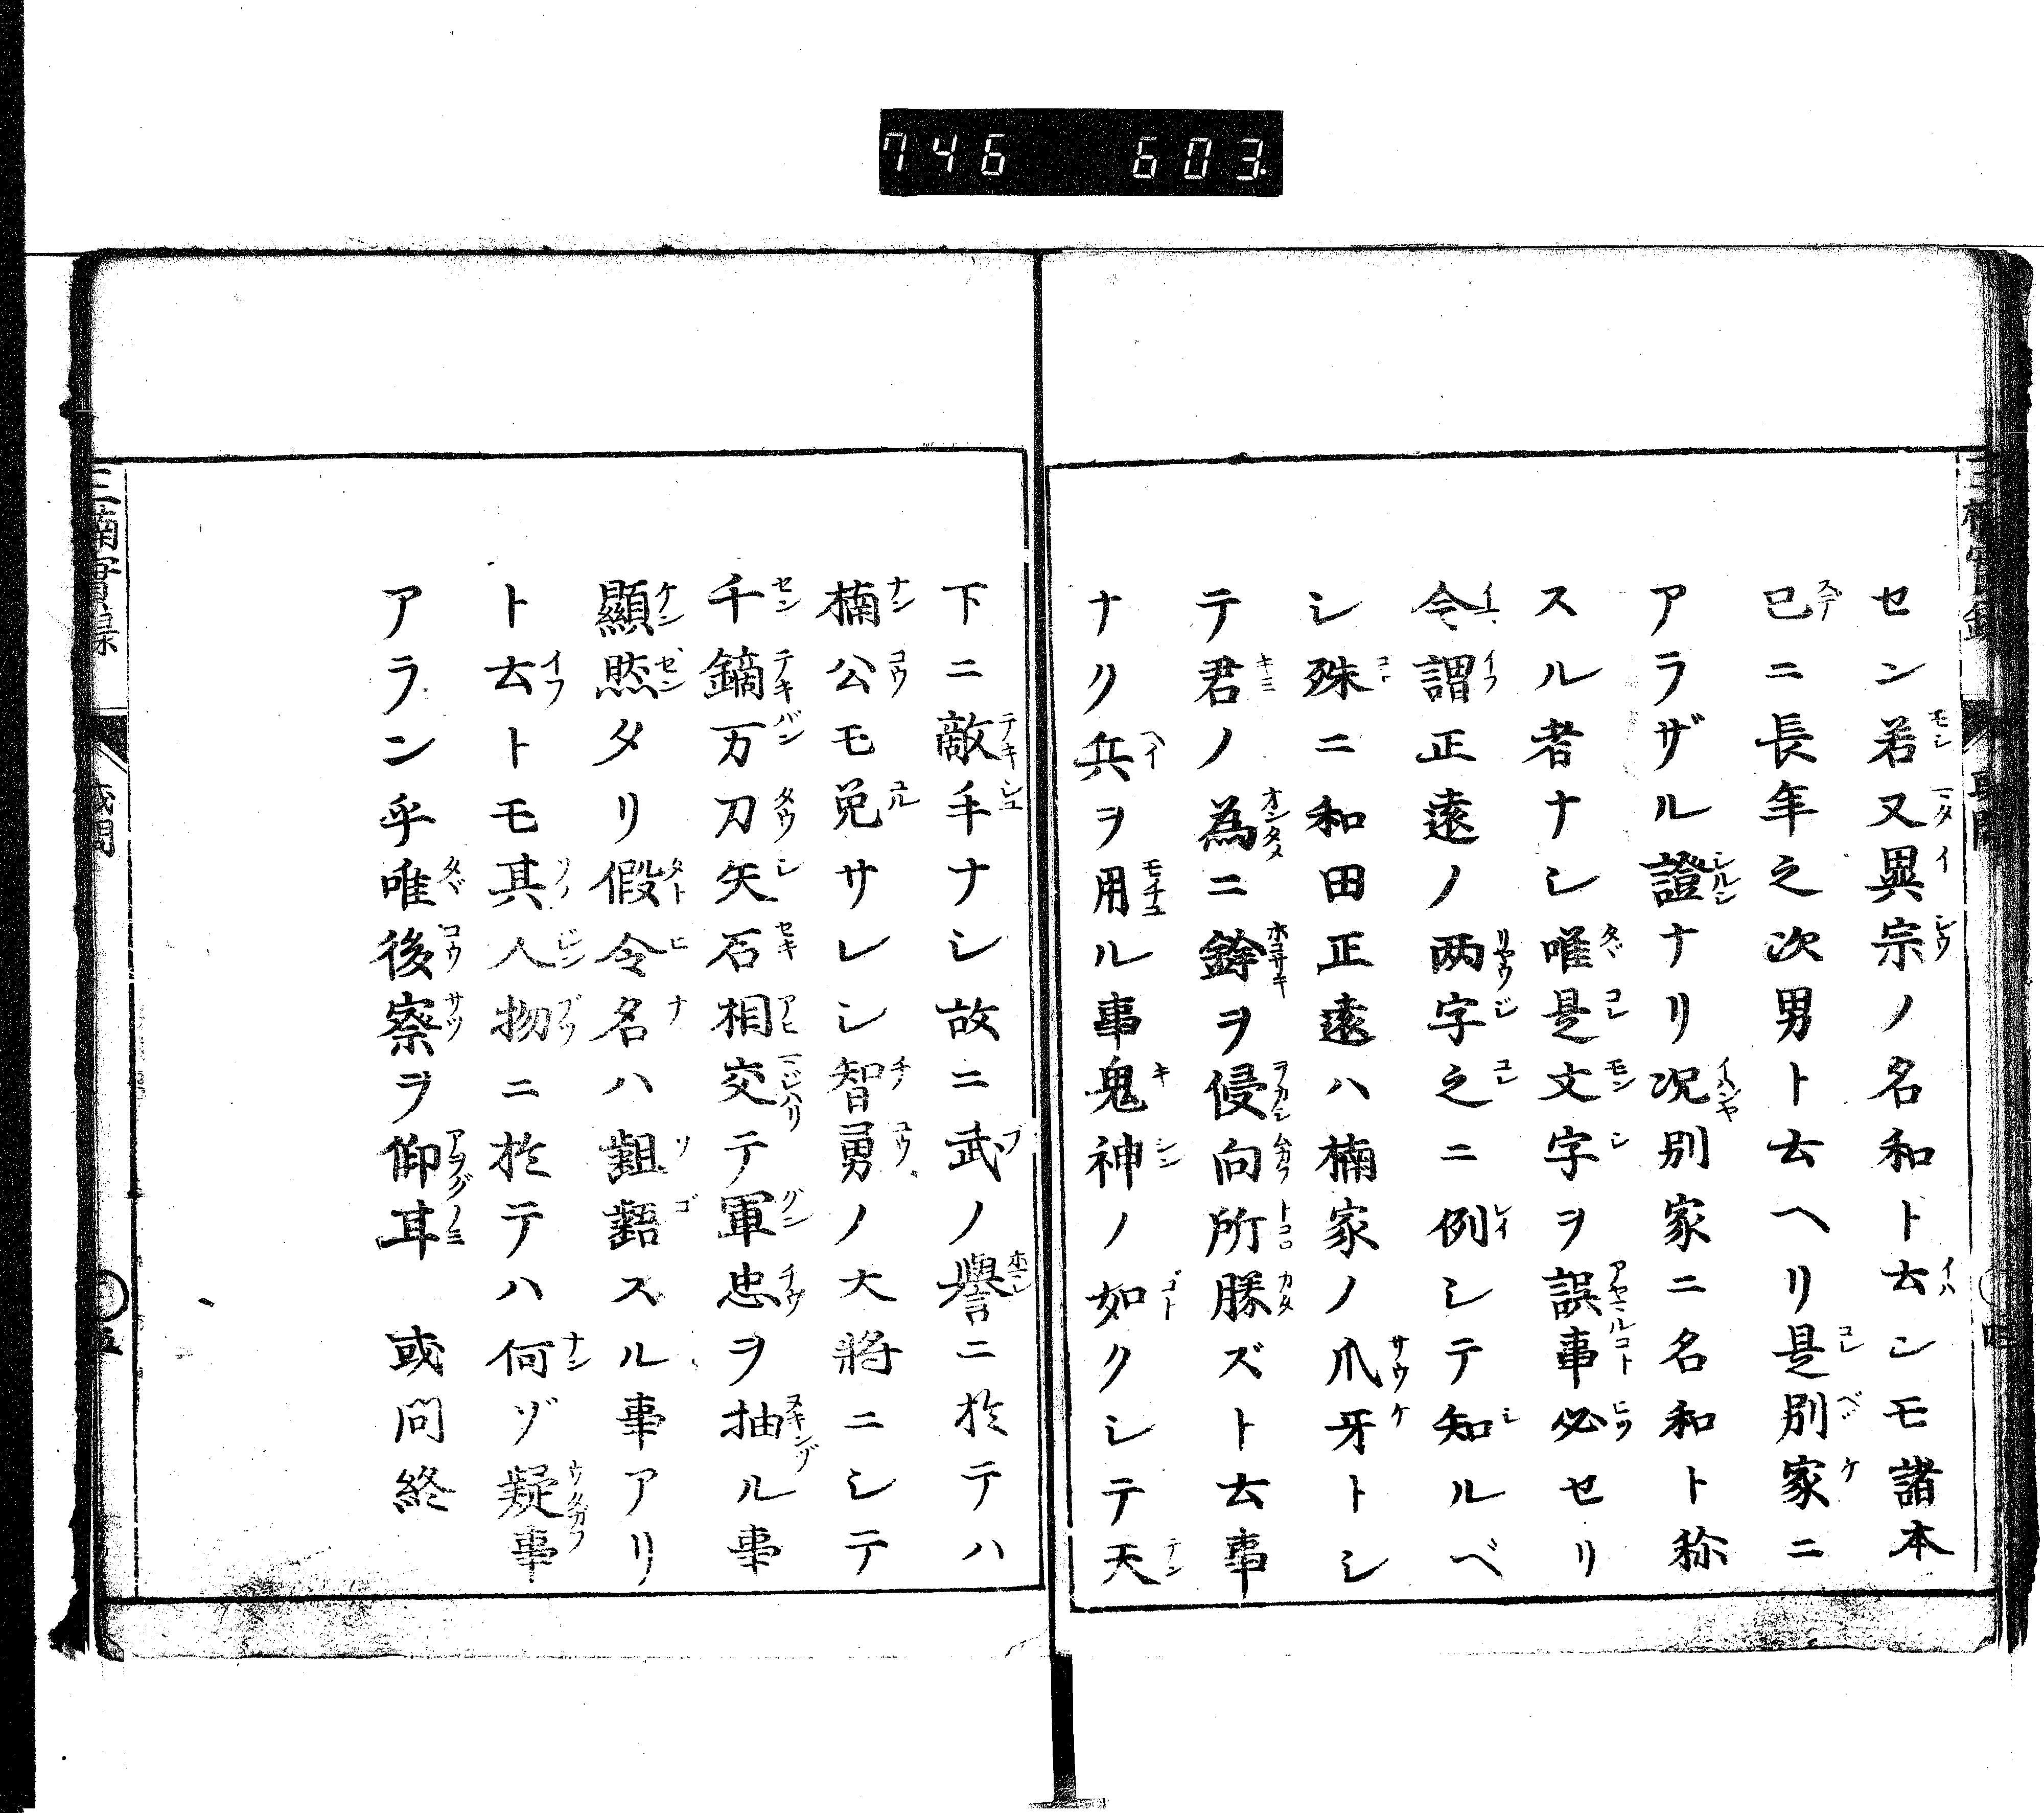 746 603
セン若又異宗ノ名和ト云ンモ諸本
已ニ長年之次男ト云ヘリ是別家ニ
アラザル證ナリ況別家ニ名和ト称
スル者ナシ唯是文字ヲ誤事必セリ
今謂正遠ノ两字之ニ例シテ知ルベ
シ殊ニ和田正遠ハ楠家ノ爪牙トシ
テ君ノ為ニ鉾ヲ侵向所勝ズト云事
ナク兵ヲ用ル事鬼神ノ如クシテ天
下ニ敵手ナシ故ニ武ノ譽ニ於テハ
楠公モ免サレシ智勇ノ大將ニシテ
千鏑万刀矢石相交テ軍忠ヲ抽ル事
顯然タリ假令名ハ齟齬スル事アリ
ト云トモ其人物ニ於テハ何ゾ疑事
アラン乎唯後察ヲ仰耳 或問終
三楠實録 或問 五